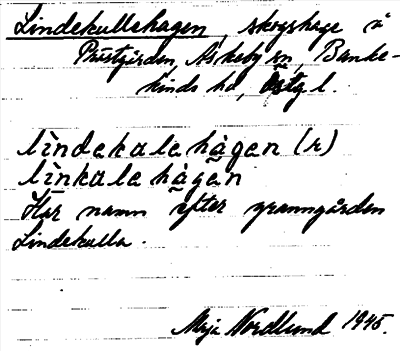 Lindekullehagen, skogshage å
Prästgården, Askeby sn, Banke-
kinds hd, Östg l.
lìndekalehàgen (r)
lìnkalehàgen
Har namn efter granngården
Lindekulla.
Maja Nordlund 1945.